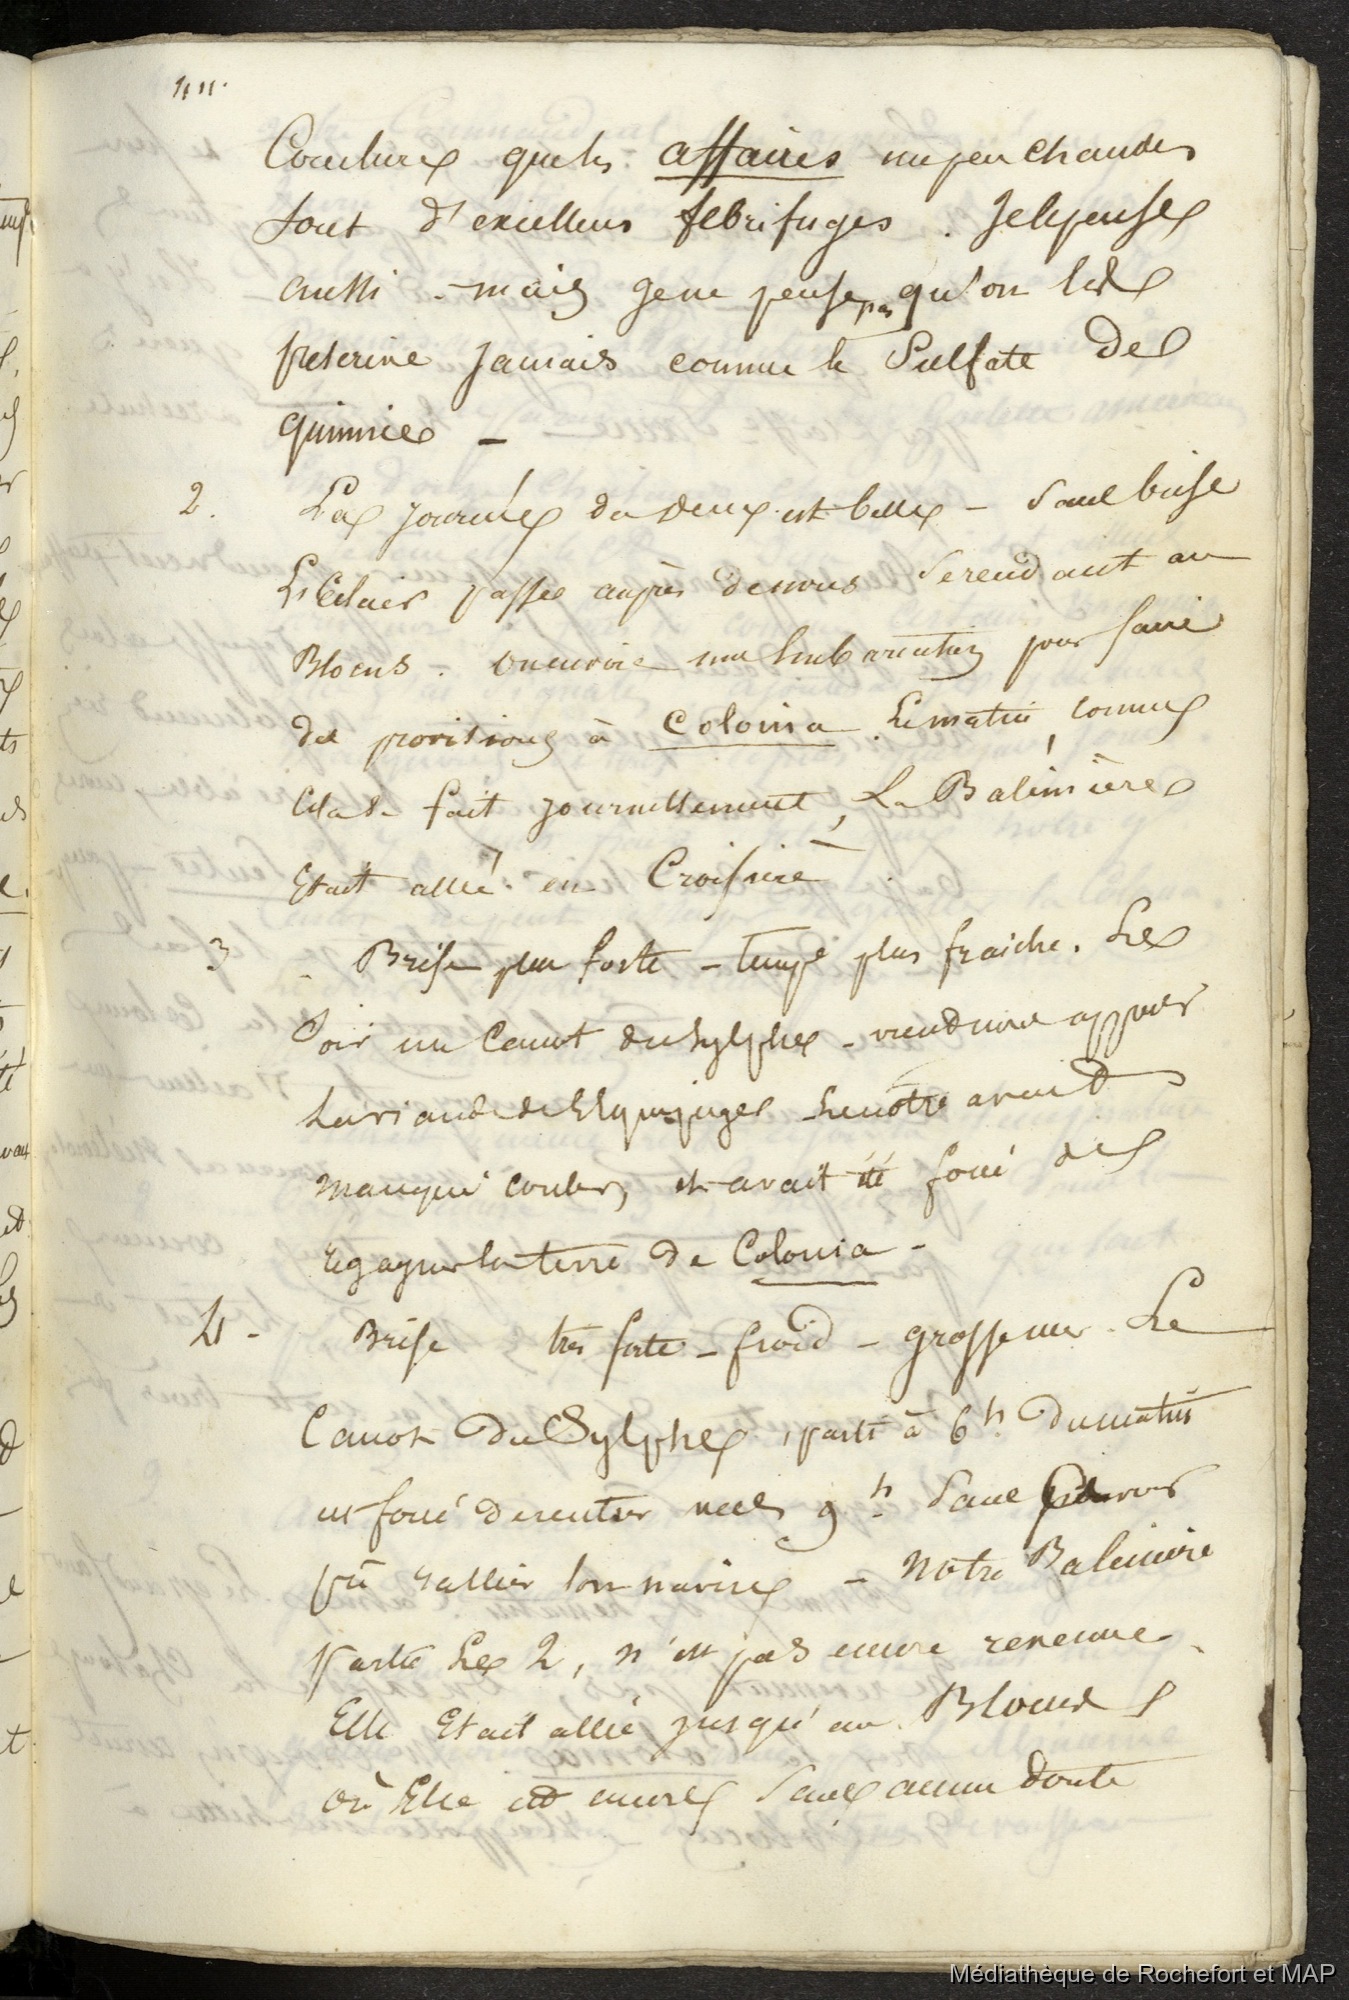 Conclure que les affaires un peu chaudes
sont d'excellens febrifuges. Je le pense
aussi - mais je ne pense pas qu'on les
prescrive jamais comme le Sulfate de
quinine -
2. La journée du deux est belle - sans brise
L'Eclair passe auprès de nous se rendant au
Blocus - on envoie une embarcation pour faire
des provisions à Colonia le matin, comme
cela se fait journellement, La Balèinière
Etait allée en Croisière
3 - Brise plus forte - temps plus fraiche. Le
Soir un Canot du Sylphe - vient nous apporter
la viande de l'équipage. Le notre avait
manqué couler, et avait été forcé de
regagner la terre de Colonia -
4 - Brise très forte - froid - grosse mer. Le
Canot du Sylphe, parti à 6h du matin
est forcé de rentrer vers 9h Sans avoir
pû rallier son navire - Notre Baleinière
partie le 2, n'est pas encore revenue.
Elle Etait allée jusqu'au Blocus
où Elle est encore sans aucun doute
Médiathèque de Rochefort et MAP